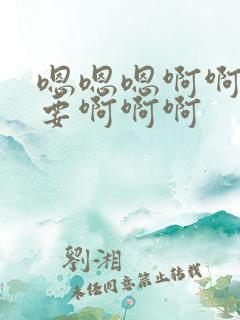 嗯嗯嗯啊啊
要啊啊啊
劉湘
未经同意禁止转载